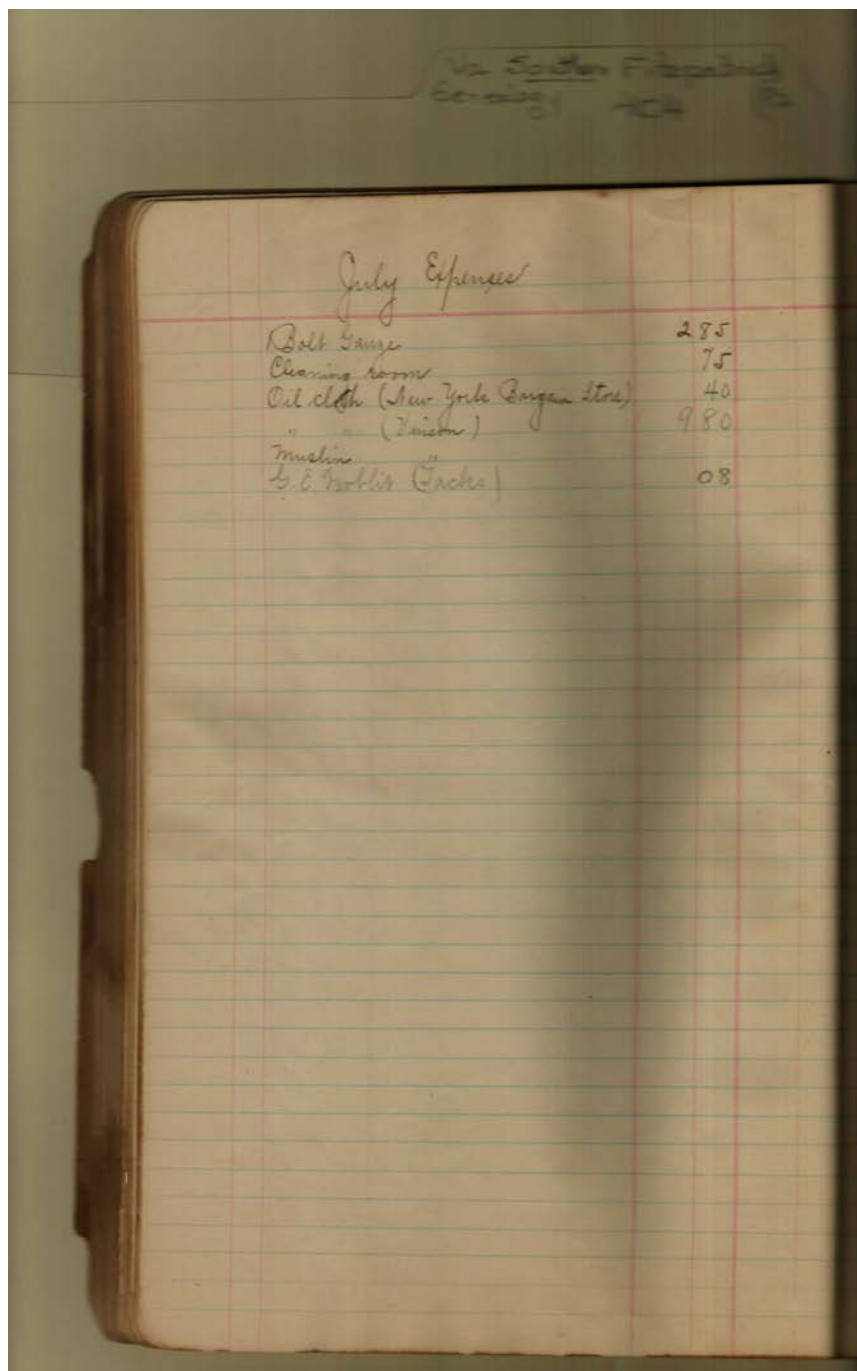 July Expenses
Bolt Gauze 2 85
Cleaning room 75
Oil cloth (New York Bargan Store) 40
" " (Vinson) 9 80
Muslin "
G. E. Noblit (Tacks) 08